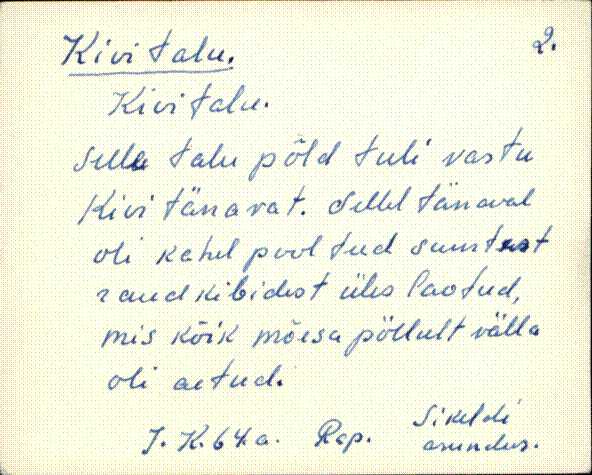 Kivi talu. 2.
Kivi talu.
Selle talu põld tuli vastu
Kivi tänavat. Sellel tänaval
oli kahel pool tud suurtest
raudkibidest üles laotud,
mis kõik mõesa põllult välla
oli aetud.
J. K. 64.a. Rap. Sikeldi
asundus.